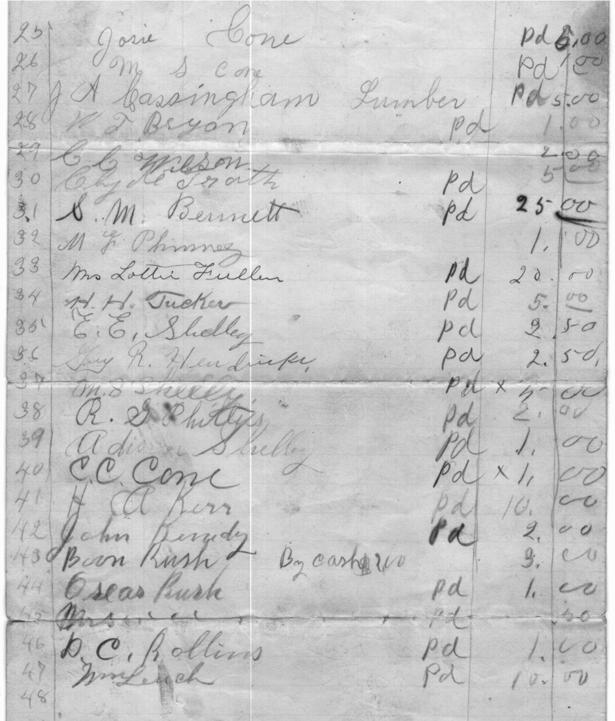 25 Josie Cone Pd 5.00
26 M S Cone Pd 1 00
27 J A Cassingham Lumber Pd 5.00
28 Bryan Pd 1.00
29 C C Wilson 2.00
30 Clyde Trath Pd 5 00
31 S. M. Bennett Pd 25 00
32 M F Phinney 1. 00
33 Mrs Lottie Fuller Pd 20.00
34 H. H. Tucker Pd 5.00
35 E. E. Shelley Pd 2.50
36 Guy R. Hendricks, Pd 2.50
37 M. S Shelly Pd x 00
38 R. Pd 2. 00
39 Shelby Pd 1. 00
40 C.C. Cone Pd x 1. 00
41 H A Kerr Pd 10. 00
42 John Pd 2. 00
43 Boon Rush By cash 3. 00
44 Oscar Rush Pd 1. 00
45 Mrs " " Pd 50
46 D. C. Rollins Pd 1. 00
47 Wm Leuch Pd 10. 00
48